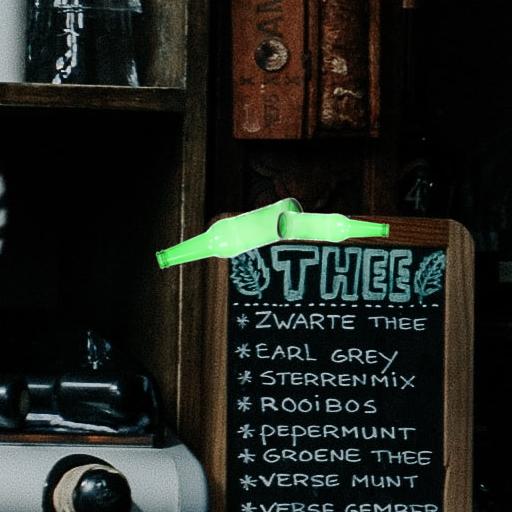 THEE
* ZWARTE THEE
* EARL GREY
* STERRENMIX
* ROOiBOS
* PEPERMUNT
* GROENE THEE
* VERSE MUNT
* VERSE GEMBER